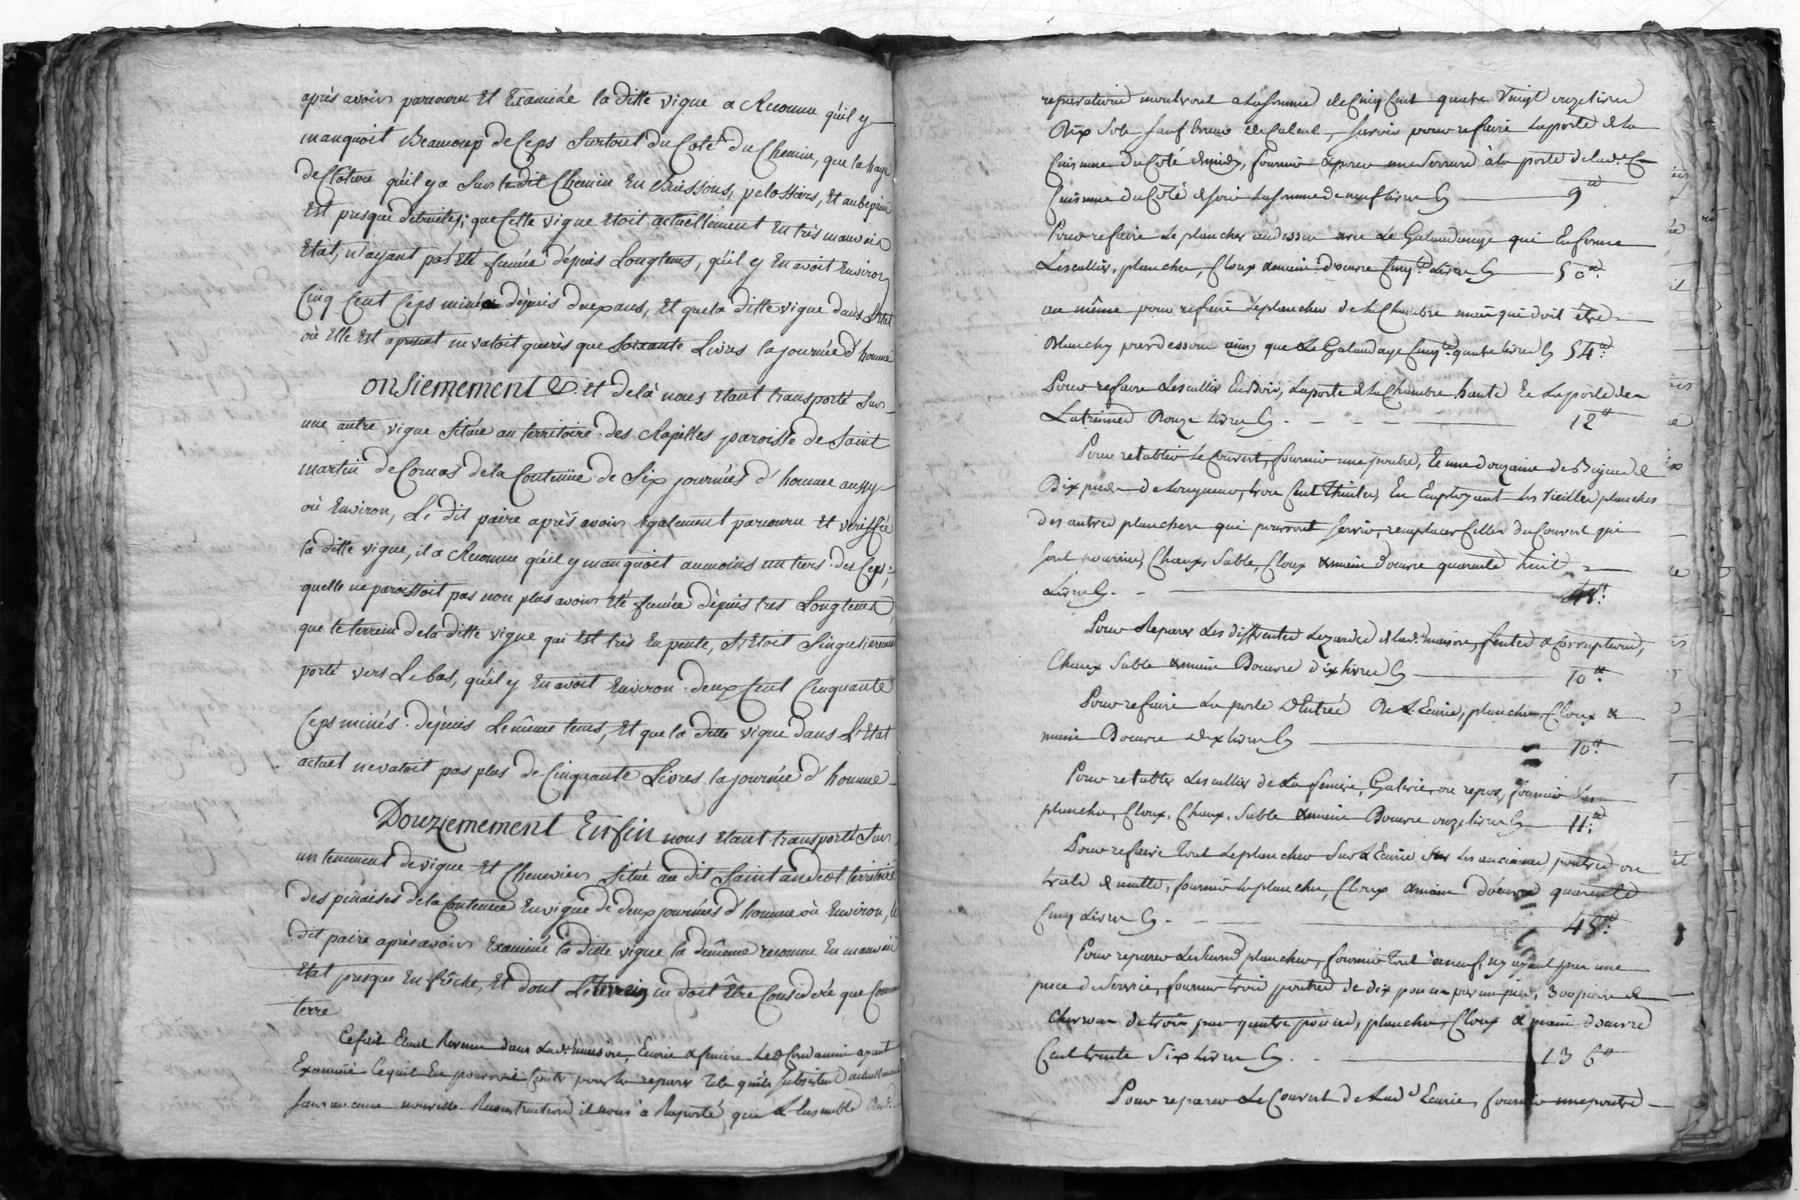 après avoir parcouru Et Examinée la ditte vigne a Reconnu qu'il y
manquoit Beaucoup de Ceps Surtout du Coté du Chemin, que la haye
de Clôture qu'il y a Sur le dit Chemin En Buissons, pelossiers, Et aubepine
Est presque detruite; que Cette vigne Etoit actuellement En très mauvais
Etat, n'ayant pas Eté fumée dépuis Longtems, qu'il y En avoit Environ
Cinq Cent Ceps minés dépuis deux ans, Et que la ditte vigne dans L'Etat
où Elle Est apresent ne valoit guères que Soixante Livres la journée d'homme
onsiemement &. Et de là nous Etant transporté Sur
une autre vigne Située au territoire des Chapelles paroisse de Saint
martin de Cornas de la Contenue de Six journées d'homme aussy
où Environ, Le dit paire après avoir Egalement parcouru Et vérifiée
la ditte vigne, il a Reconnu qu'il y manquoit aumoins un tiers des Ceps;
quelle ne paroissoit pas non plus avoir Eté fumée dépuis tres Longtems,
que le terrein de la ditte vigne qui Est très En pente, S'Etoit Singulierement
porté vers Le bas, qu'il y En avoit Environ deux Cent Cinquante
Ceps minés dépuis Le même tems, Et que la ditte vigne dans L'Etat
actuel ne valoit pas plus de Cinquante Livres la journée d'homme
Douziemement Enfin nous Etant transporté Sur
un tenement de vigne Et Chenevier Situé au dit Saint andeol territoire
des pinaises de la Contenue En vigne de deux journées d'homme où Environ, le
dit paire après avoir Examiné la ditte vigne la de même reconnu En mauvais
Etat presque En frîche, Et dont Le terrein ne doit Être Consideré que Comme
terre
Ce fait Etant Revenu dans la d. maison, Ecurie & feniere Led Condamin ayant
Examiné Ce qu'il En pourroit Couter pour les reparer Tels qu'ils Subsistent actuellement
Sans aucune nouvelle Reconstruction il nous a Raporté que L'Ensemble des
reparations montront a La Somme de Cinq Cent quatre Vingt onze livres
Dix Sols Sauf Erreur de Calcul, Savoir pour refaire La porte de la
Cuisinne du Coté de midy, fournir & poser une Serrure à la porte de lad.
Cuisinne du Coté de soir La Somme de neuf livres Cy 9 #
Pour refaire Le plancher au dessus avec Le Galandage qui En forme
L'escallier, planches, Cloux & main d'œuvre Cinq.te Livres Cy 50 #
au même pour refaire Le plancher de la Chambre qui doit être
Blanchy par dessous ainsy que Le Galandage Cinq.te quatre livres Cy 54 #
Pour refaire L'escallier En Bois, La porte de la Chambre haute & La porte des
Latrinnes Douze livres Cy 12 #
Pour retablir Le Couvert, fournir une poutre, & une douzaine de
Dix pieds de Longueur, trois Cent thuiles, En Employant les vieilles planches
des autres planchers qui pourront Servir, remplacer Celles du Couvert qui
sont pourries, Chaux, Sable, Cloux & main d'œuvre quarante huit
Livres Cy 48 #
Pour Reparer Les differentes Lezardes de lad. maison, fentes & Corruptions,
Chaux Sable & main D'œuvre dix livres Cy 10 #
Pour refaire La porte D'Entrée De L'Ecurie, planches, Cloux &
main D'œuvre dix livres Cy 10 #
Pour retablir L'escallier de La feniere, Galerie ou repos, fournir les
planches, Cloux, Chaux, Sable & main D'œuvre onze livres Cy 11 #
Pour refaire Tout Le plancher Sur L'Ecurie Sur les anciennes poutres ou
fournir les planches, Cloux & main d'œuvre quarante
Cinq Livres Cy 45 #
Pour reparer Le Second plancher, fournir tout à neuf, n'y ayant pas une
piece de Service, fournir trois poutres de dix pouces par un pied, 300 pieds de
Chevrons de trois par quatre pouces, planches, Cloux & main d'œuvre
Cent trente Six livres Cy 136 #
Pour reparer Le Couvert de Lad. Ecurie, fournir une poutre